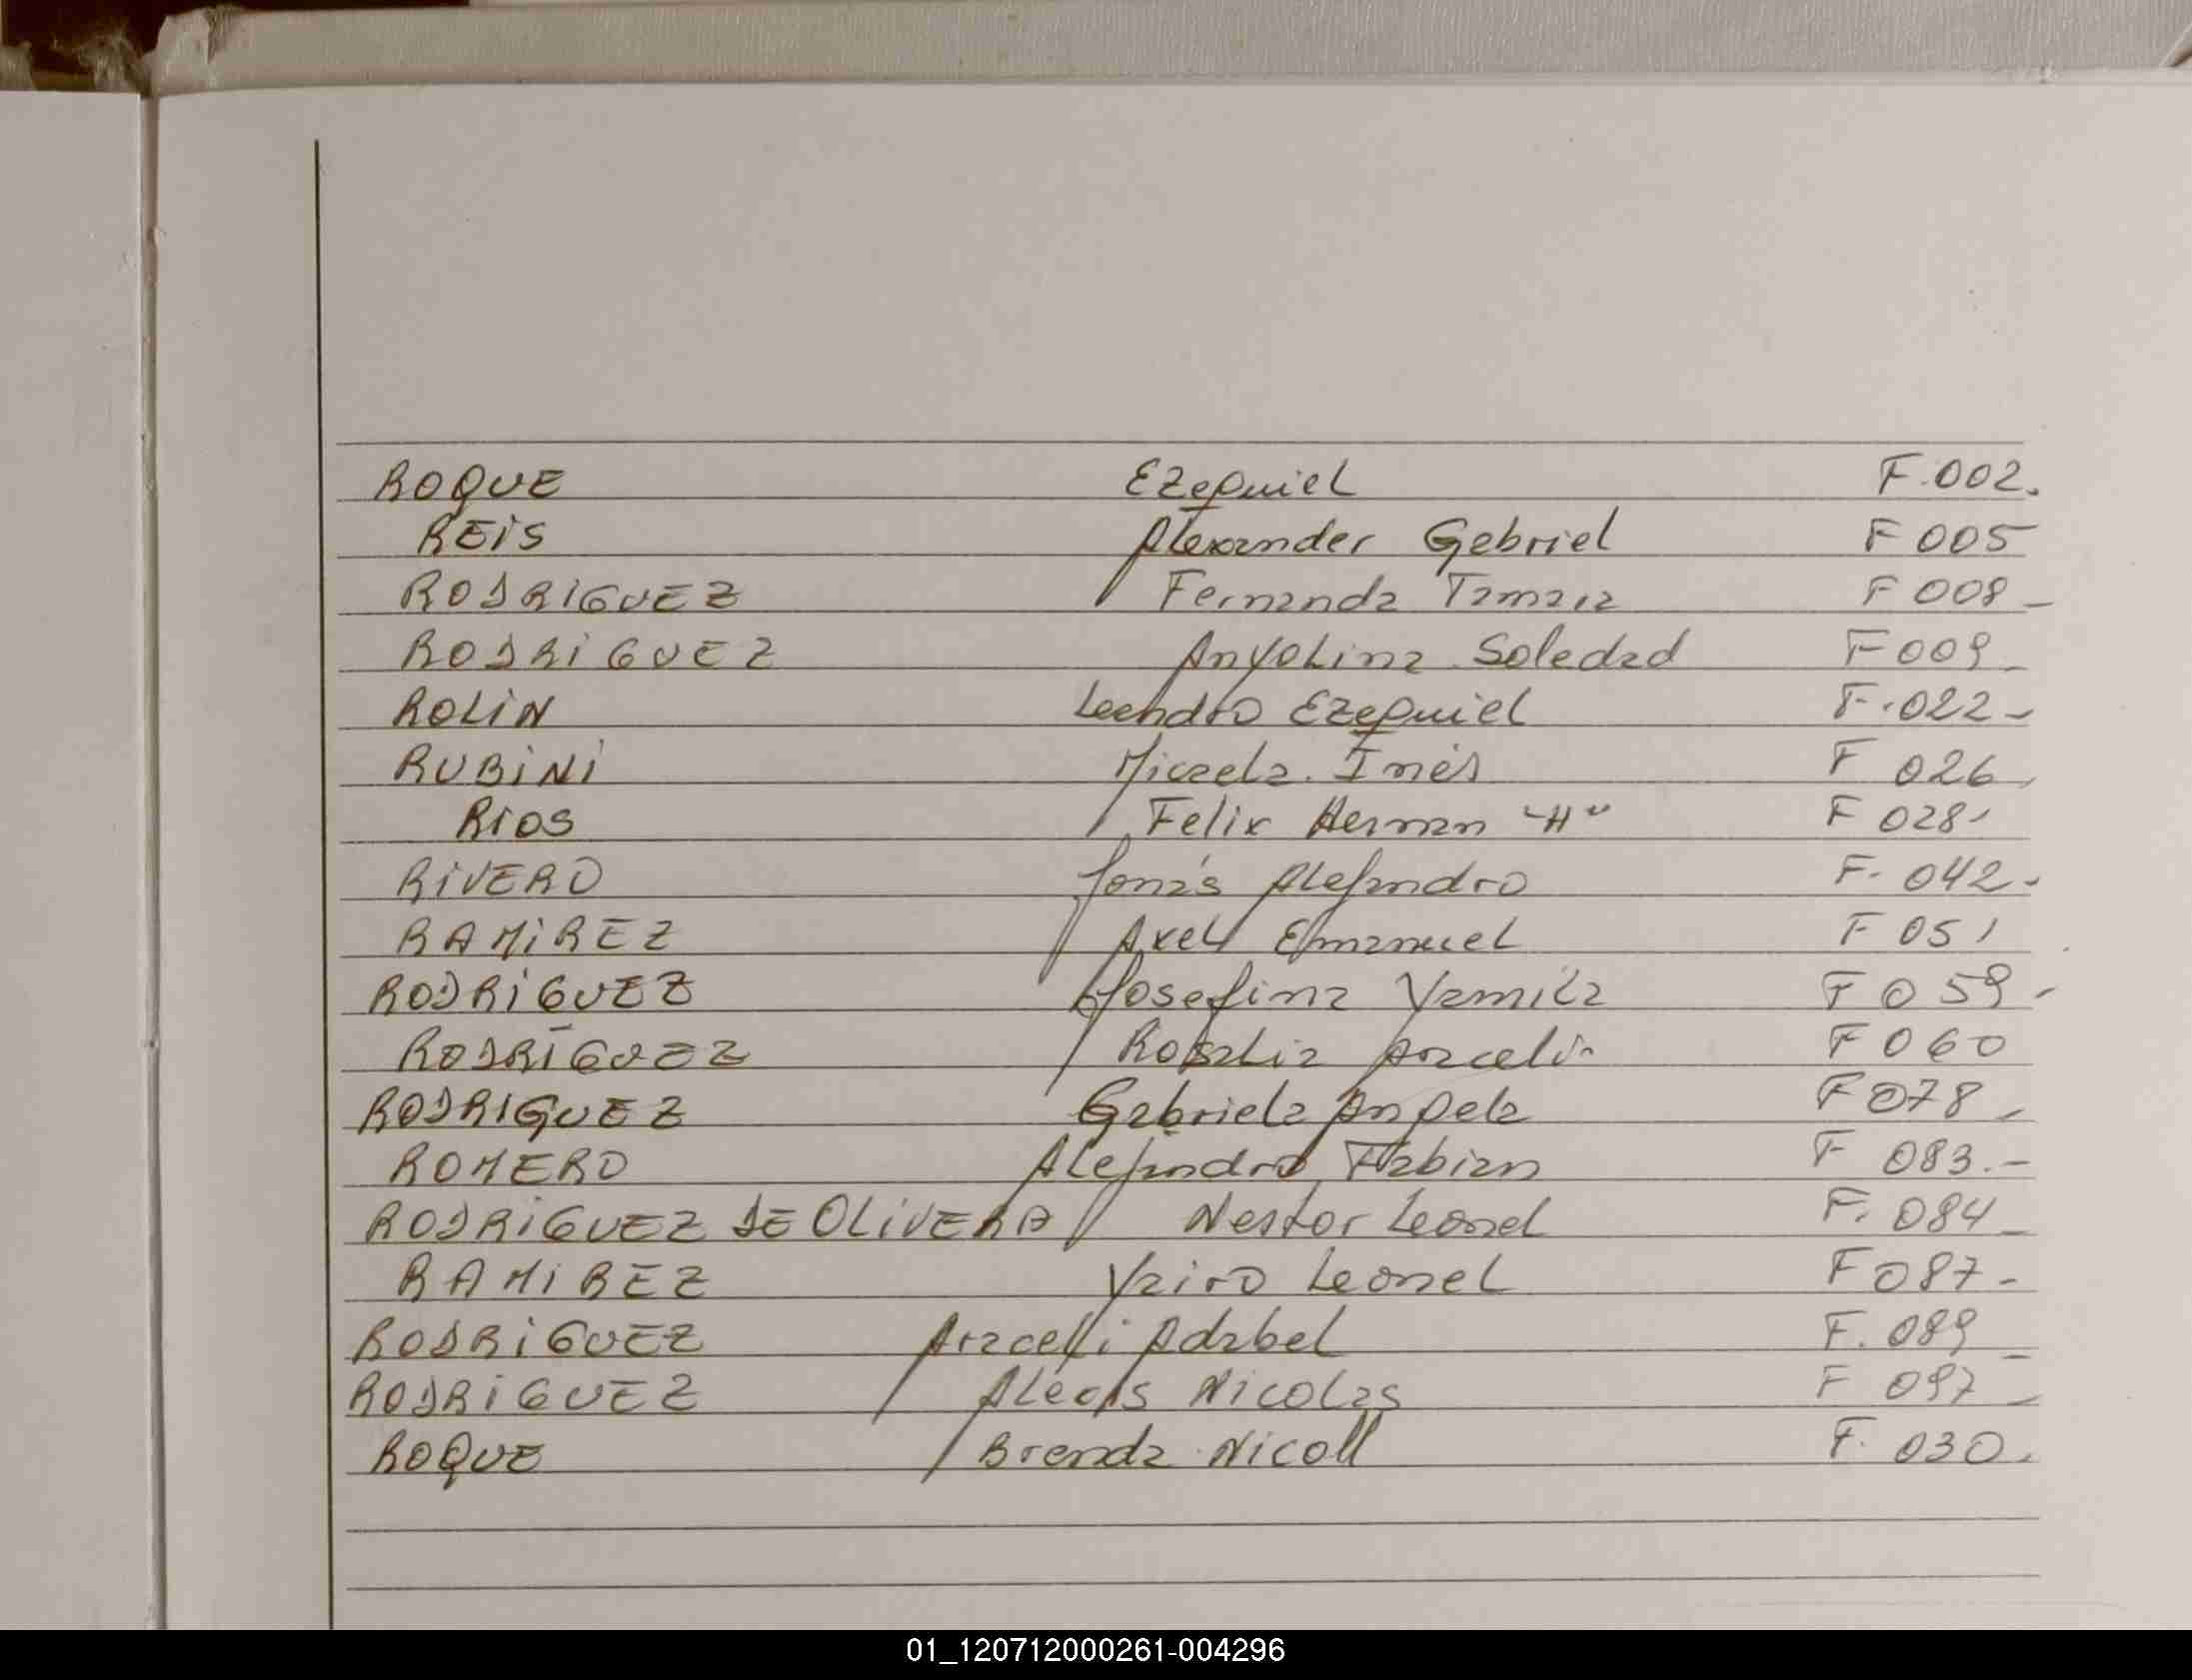 ROQUE Ezequiel F.002.
REIS Alexander Gabriel F 005
RODRIGUEZ Fernanda Tamara F 008_
RODRIGUEZ Anyolina Soledad F 009_
ROLIN Leandro Ezequiel F.022-
RUBINI Micaela Inés F 026
RIOS Felix Hernan "H" F 028-
RIVERO Jonás Alejandro F. 042-
RAMIREZ Axel Emanuel F 051
RODRIGUEZ Josefina Yamila F 059-
RODRIGUEZ Araceli F 060
RODRIGUEZ Gabriela Angela F 078_
ROMERO Alejandro Fabian F 083.-
RODRIGUEZ DE OLIVERA Nestor Leonel F. 084_
RAMIREZ Yairo Leonel F 087-
RODRIGUEZ Araceli Adabel F. 089_
RODRIGUEZ Nicolas F 097_
ROQUE Brenda Nicoll F. 030.
01_120712000261-004296